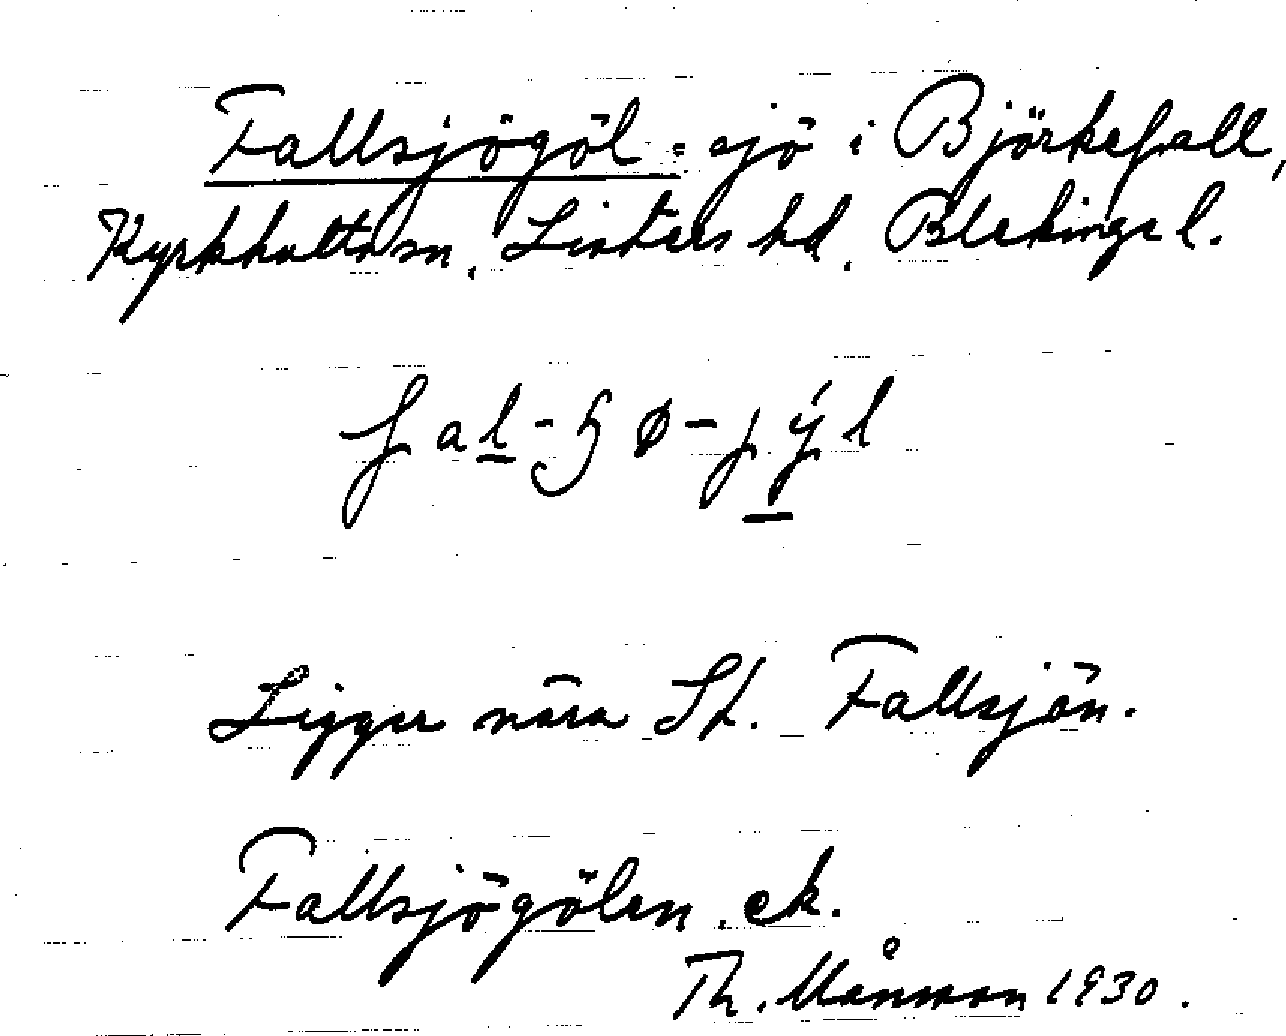 Fallsjögöl = sjö i Björkefall,
Kyrkhults sn, Listers hd, Blekinge l.
fal-ʃø-jýl
Ligger nära St. Fallsjön.
Fallsjögölen, ek.
Th. Månsson 1930.